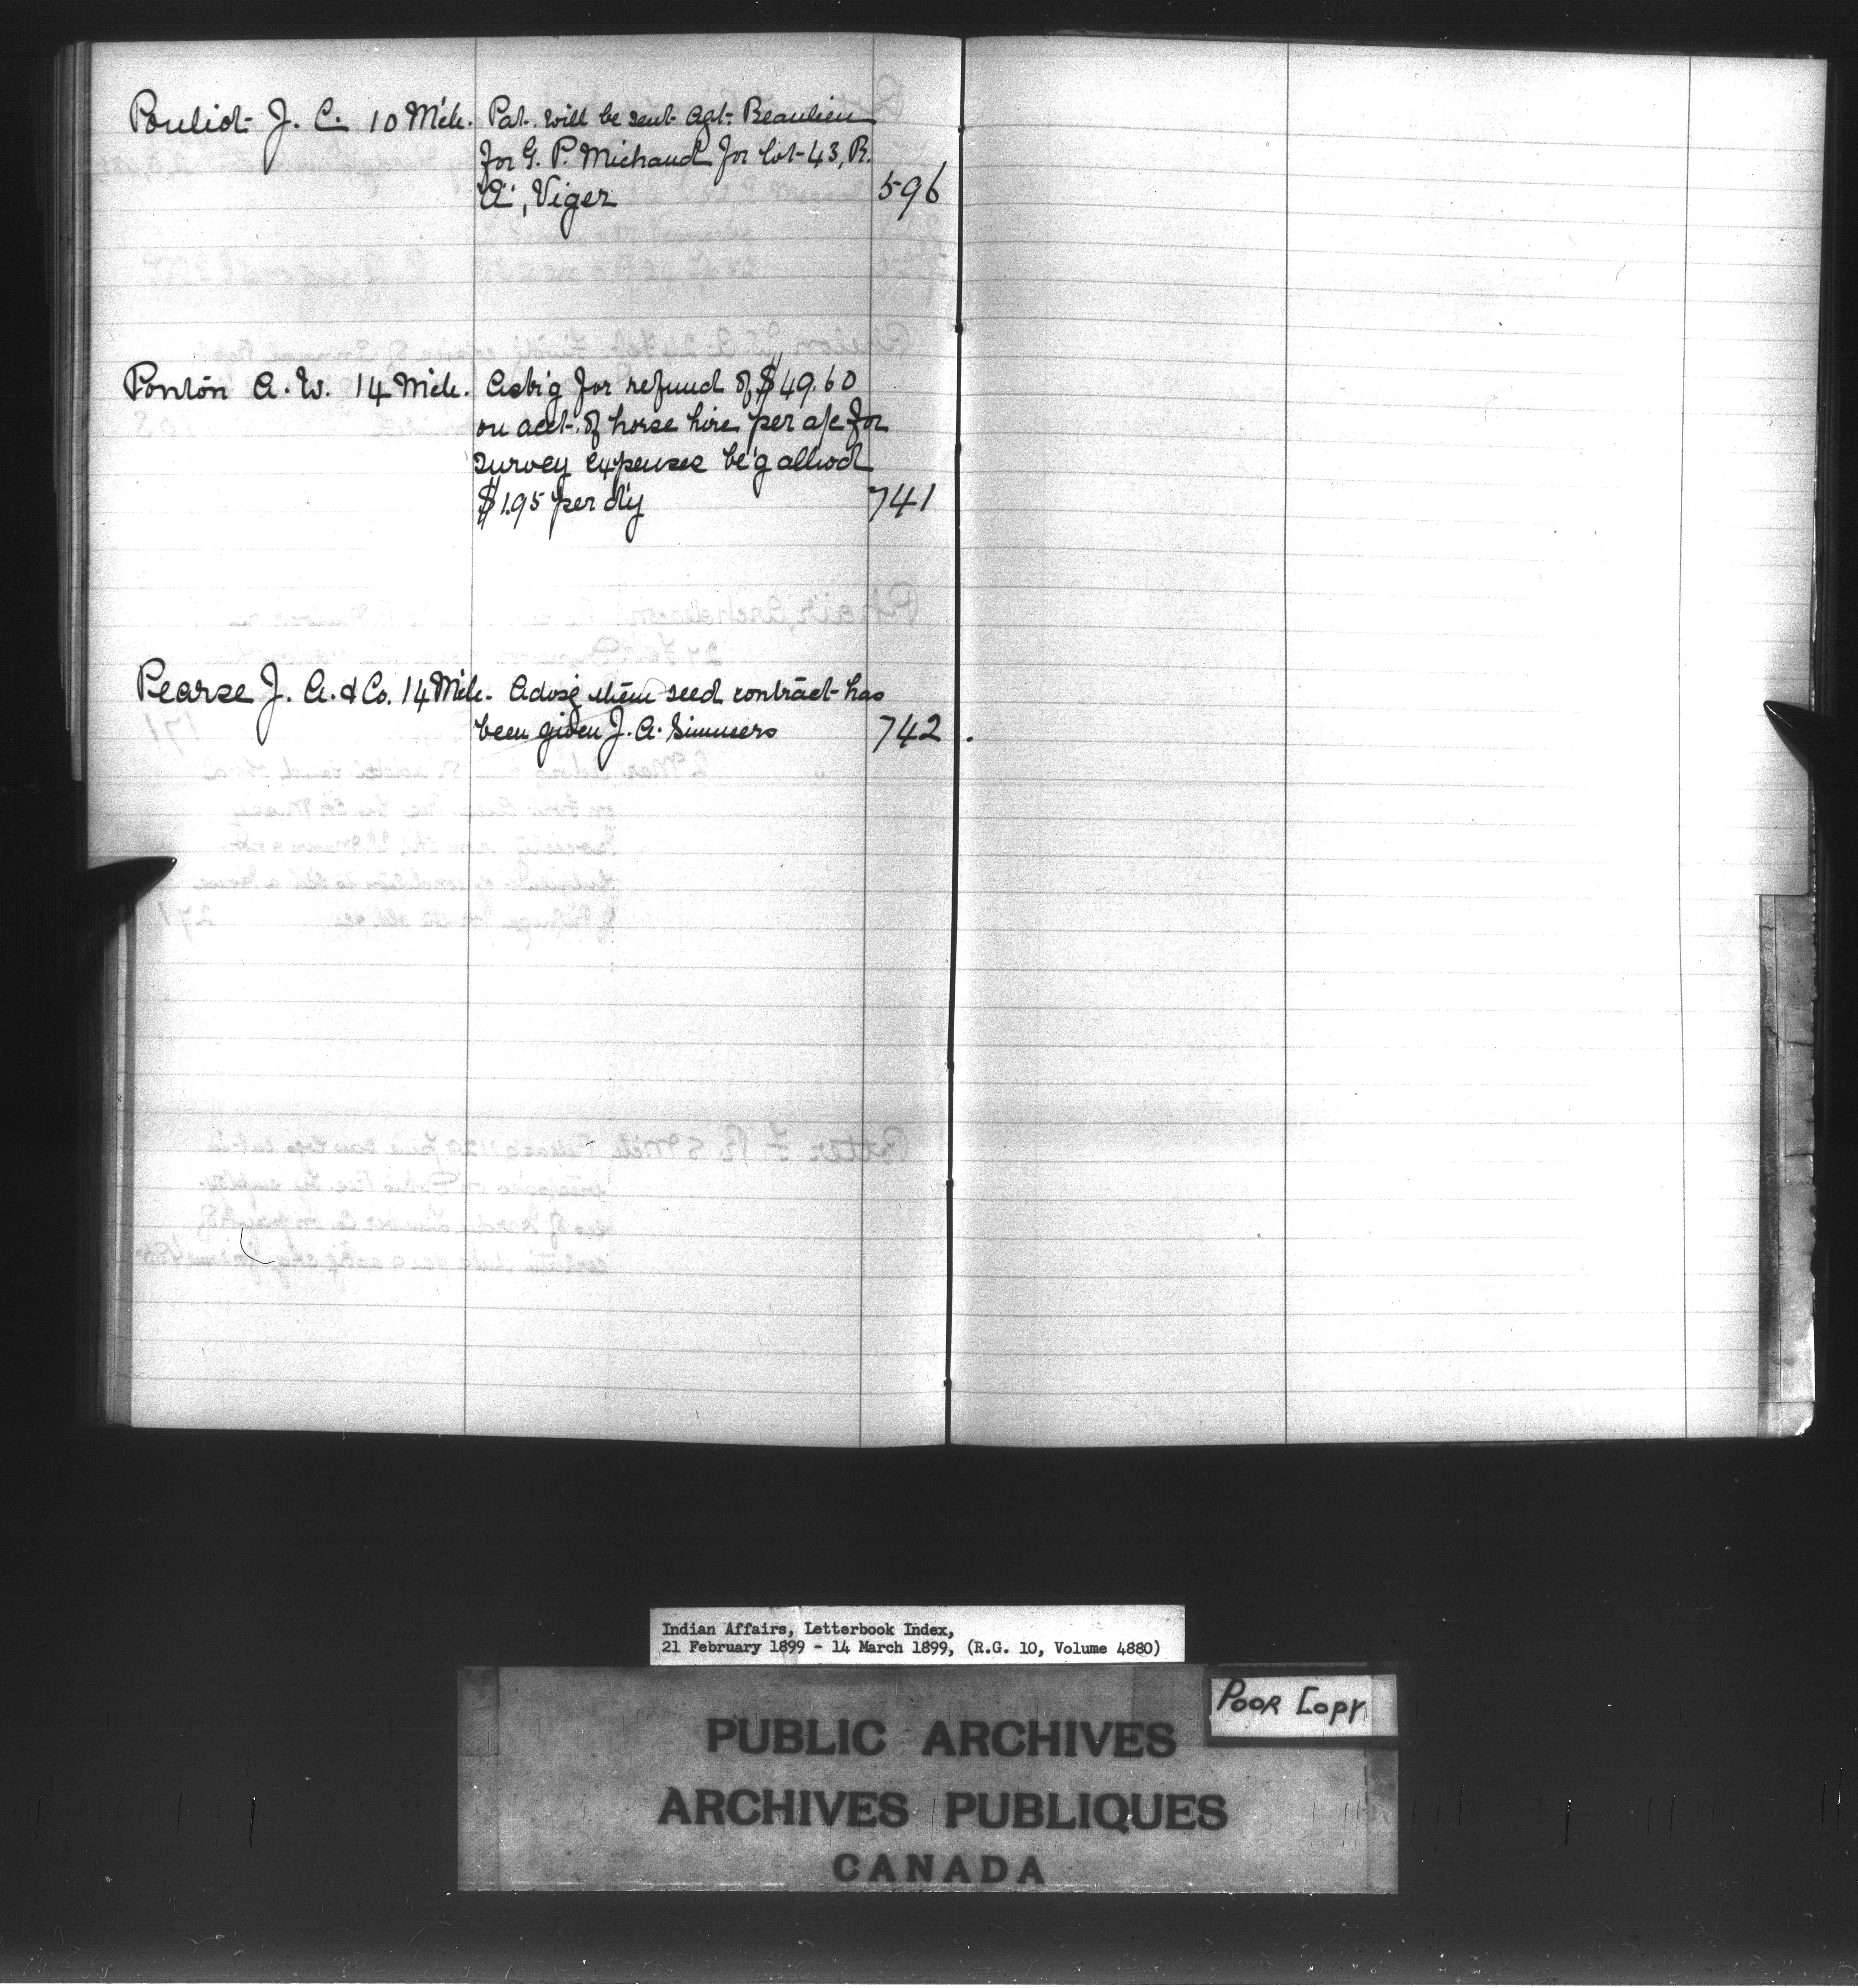 Pouliot J. C. 10 Mch. Pat. will be sent Agt. Beaulieu
for G. P. Michaud for lot 43, R.
"A", Viger 596
Ponton A. W. 14 Mch. Ask'g for refund of $49.60
on acct. of horse hire per a/c for
survey expenses be'g allwd
$1.95 per d'y 741
Pearse J. A. & Co. 14 Mch. Advsg them seed contract has
been given J. A. Simmers 742
Indian Affairs, Letterbook Index,
21 February 1899 - 14 March 1899, (R.G. 10, Volume 4880)
POOR COPY
PUBLIC ARCHIVES
ARCHIVES PUBLIQUES
CANADA